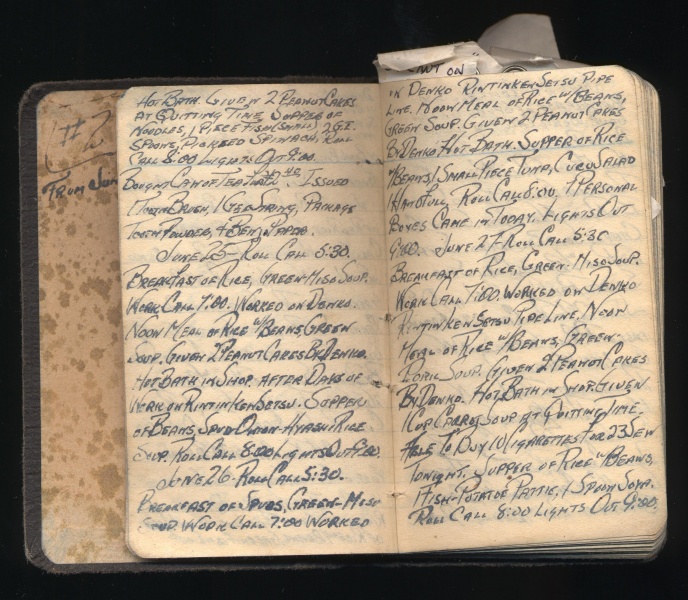 #2
From Jun
Hot Bath. Given 2 Peanut Cakes
at Quitting Time. Supper of
Noodles, 1 Piece Fish (Small), 2
Spoons Pickled Spinach. Roll
Call 8:00 Lights Out 9:00.
Bought Can of Tea. Issued
1 Tooth Brush, 1 Gee String, Package
Tooth Powder, & Benjo Paper.
June 25 - Roll Call 5:30.
Breakfast of Rice, Green-Miso Soup.
Work Call 7:00. Worked on Denko.
Noon Meal of Rice w/ Beans, Green
Soup. Given 2 Peanut Cakes By Denko.
Hot Bath in Shop. After Days of
Work on Rintinken Setsu. Supper
of Beans, Spud Onion-Hyashi Rice
Soup. Roll Call 8:00 Lights Out 9:00.
June 26 - Roll Call 5:30.
Breakfast of Spuds, Green-Miso
Soup. Work Call 7:00 Worked
on
on Denko Rintinken Setsu Pipe
Line. Noon Meal of Rice w/ Beans,
Green Soup. Given 2 Peanut Cakes
By Denko. Hot Bath. Supper of Rice
w/ Beans, 1 Small Piece Tuna, Cucu Salad
Handfull, Roll Call 8:00. 7 Personal
Boxes Came in Today. Lights Out
9:00. June 27 - Roll Call 5:30
Breakfast of Rice, Green-Miso Soup.
Work Call 7:00. Worked on Denko
Rintinken Setsu Pipe Line. Noon
Meal of Rice w/ Beans, Green-
Soup. Given 2 Peanut Cakes
By Denko. Hot Bath in Shop. Given
1 Cup Carrot Soup at Quitting Time.
Able to Buy 10 Cigarettes For 23 Sen
Tonight. Supper of Rice w/ Beans,
1 Fish-Potatoe Pattie, 1 Spoon Soya.
Roll Call 8:00 Lights Out 9:00.